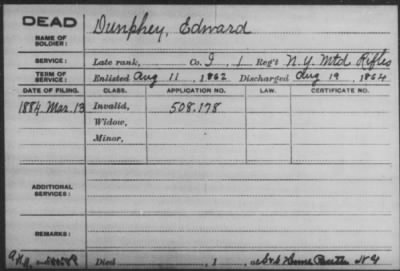 DEAD
NAME OF SOLDIER: Dunphey, Edward
SERVICE: Late rank, Co. I, 1 Reg't N.Y. Mtd Rifles
TERM OF SERVICE: Enlisted Aug 11, 1862 Discharged Aug 19, 1864
DATE OF FILING. CLASS. APPLICATION NO. LAW. CERTIFICATE NO.
1884 Mar. 13 Invalid, 508.178
Widow,
Minor,
ADDITIONAL SERVICES:
REMARKS:
Died , 1 , at Home N Y